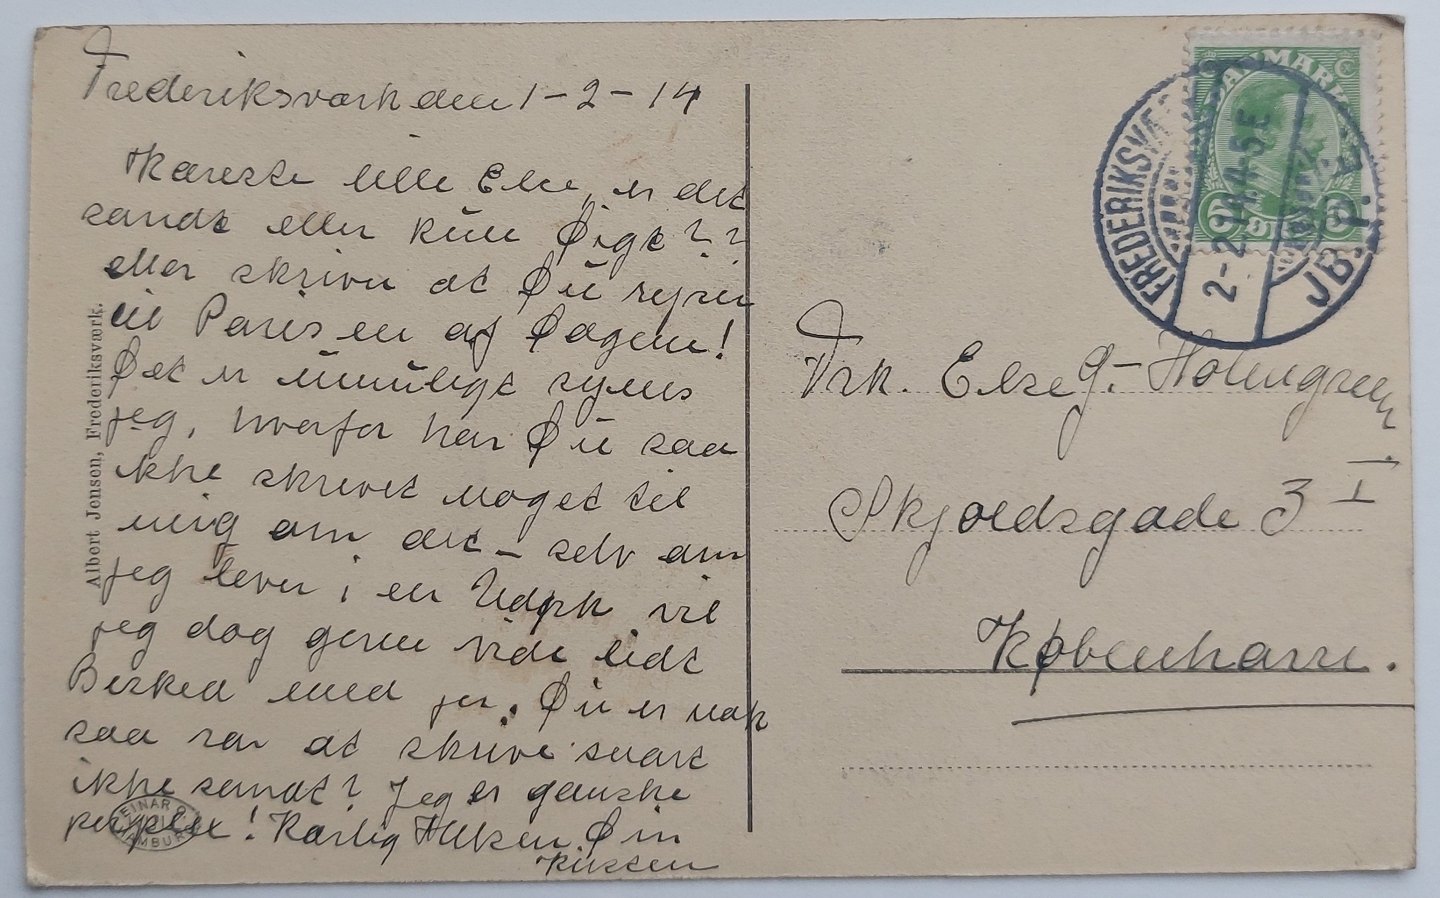 Frederiksværk den 1-2-14
Kæreste lille Else, er det
sandt eller kun Digt??
eller skriver at Du rejser
til Paris en af Dagene!
Det er umuligt synes
jeg, hvorfor har Du saa
ikke skrevet noget til
mig om det - selv om
jeg lever i en Udørk vil
jeg dog gerne vide lidt
Besked med jer. Du er nok
saa rar at skrive snart
ikke sandt? Jeg er ganske
perplex! Kærlig Hilsen Din
Albert Jensen, Frederiksværk.
FREDERIKSVÆ
2-2.14.4-5E
JB.P.E
DANMARK
5 5
Frk. Else G. Holmgreen.
Skjoldsgade 3 I
København.